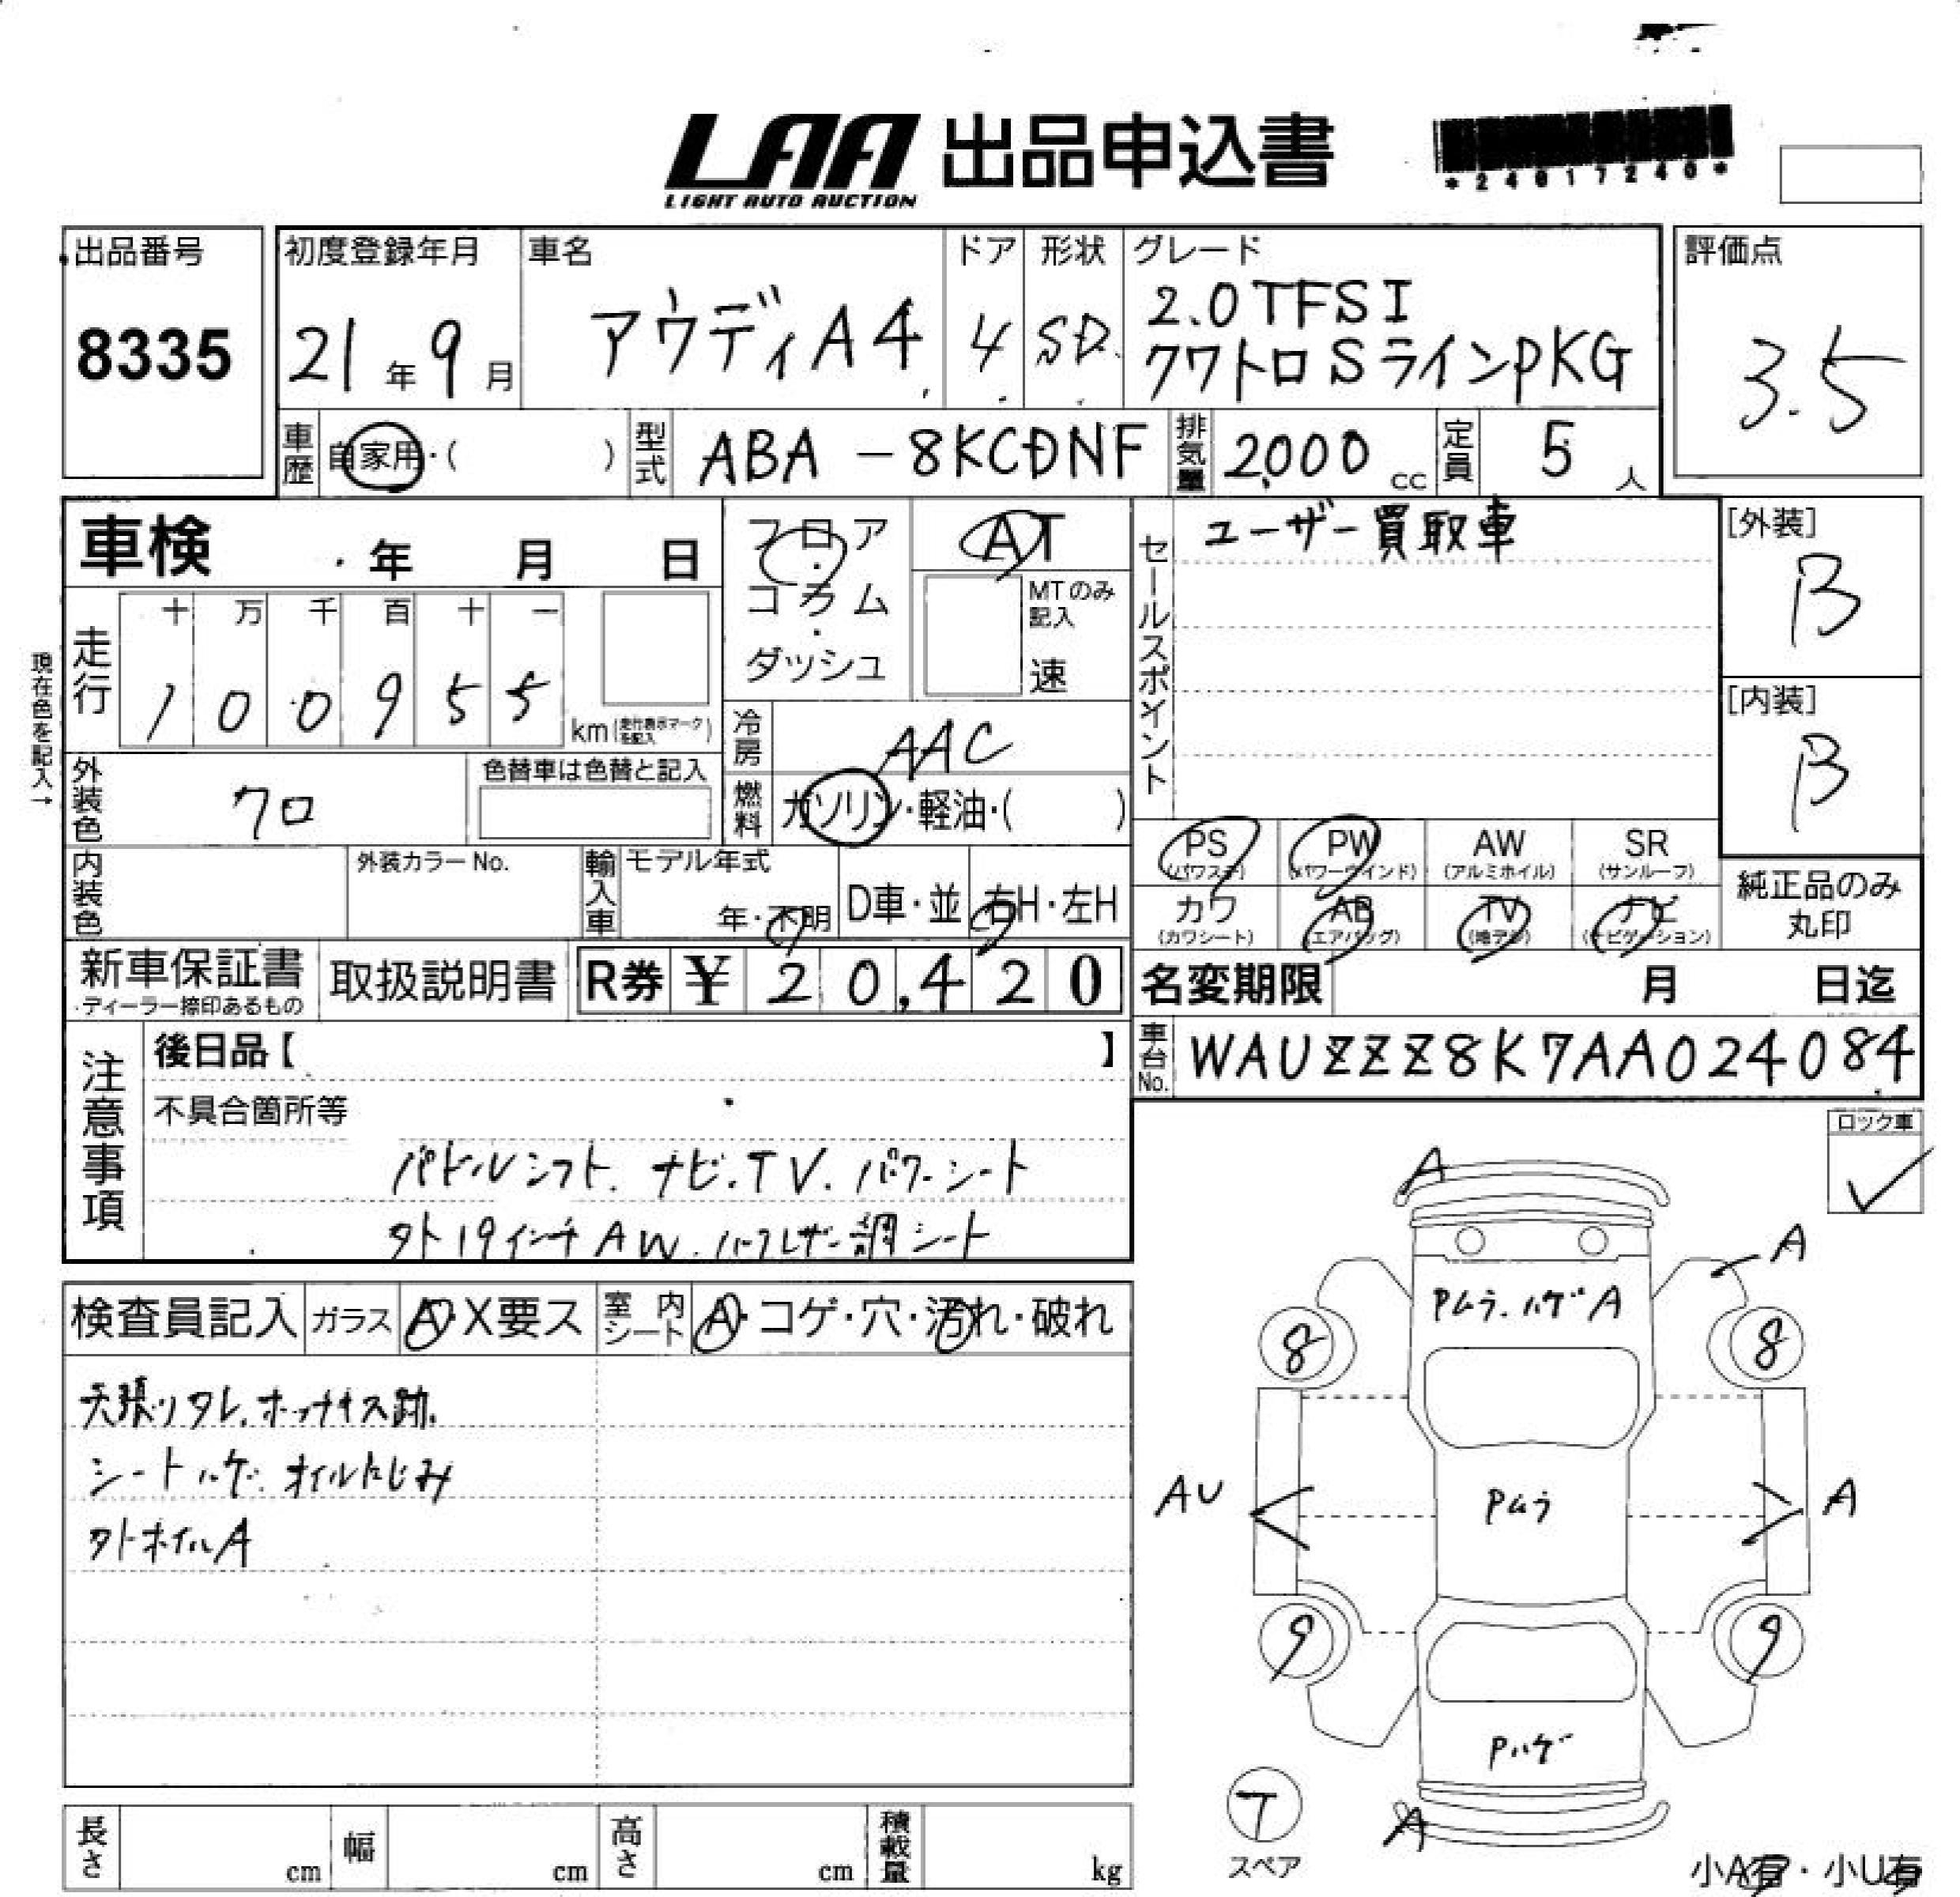 LAA 出品申込書
LIGHT AUTO AUCTION
*24017240*
出品番号
8335
初度登録年月
21年9月
車名
アウディA4
ドア
4
形状
SD
グレード
2.0TFSI
クワトロSラインPKG
評価点
3.5
車歴
自家用・( )
型式
ABA-8KCDNF
排気量
2,000cc
定員
5人
車検 年 月 日
フロア・コラム・ダッシュ
AT
MTのみ記入
速
セールスポイント
ユーザー買取車
[外装]
B
[内装]
B
現在色を記入→
走行
十 万 千 百 十 一
1 0 0 9 5 5
km(走行表示マークを記入)
冷房
AAC
外装色
クロ
色替車は色替と記入
燃料
ガソリン・軽油・( )
PS (パワステ)
PW (パワーウインド)
AW (アルミホイル)
SR (サンルーフ)
カワ (カワシート)
AB (エアバッグ)
TV (地デジ)
ナビ (ナビゲーション)
純正品のみ
丸印
内装色
外装カラーNo.
輸入車
モデル年式
年・不明
D車・並
右H・左H
新車保証書
・ディーラー捺印あるもの
取扱説明書
R券 ¥ 20,420
名変期限 月 日迄
車台No.
WAUZZZ8K7AA024084
注意事項
後日品【 】
不具合箇所等
パドルシフト.ナビ.TV.パワーシート
タト19インチAW.ハーフレザー調シート
ロック車
検査員記入
ガラス
A・X要ス
室内シート
A・コゲ・穴・汚れ・破れ
天張リタレ.ホッチキス跡.
シートハゲ.オイルにじみ
タトホイルA
A
A
Pムラ.ハゲA
8
8
AU
Pムラ
A
9
9
Pハゲ
T
スペア
A
小A有・小U有
長さ cm
幅 cm
高さ cm
積載量 kg